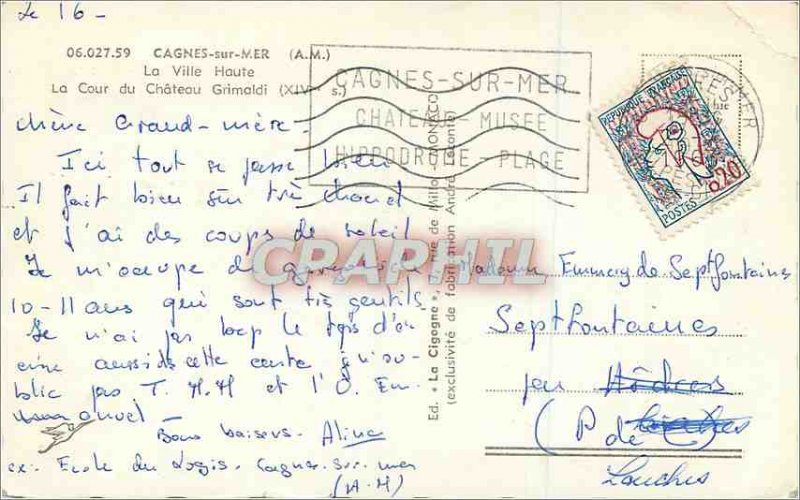 Le 16 -
06.027.59 CAGNES-sur-MER (A.M.)
La Ville Haute
La Cour du Château Grimaldi (XIVe s.)
chère Grand-mère.
Ici tout se passe bien
Il fait bien sûr très chaud
et j'ai des coups de soleil
Je m'occupe de garçons de
10-11 ans qui sont très gentils.
Je n'ai pas trop le tps d'é
crire aussi cette carte
blie pas T. M. M et l'O. Em
anuel -
Bons baisers. Aline
ex: Ecole du Logis. Cagnes-sur-mer
(A-M)
CAGNES-SUR-MER
CHATEAU - MUSEE
HIPPODROME - PLAGE
REPUBLIQUE FRANÇAISE
0,20
POSTES
Ed. "La Cigogne", rue de Millo - MONACO
(exclusivité de fabrication André Leconte)
CPARPHIL
Madame Emmay de Septfontaines
Septfontaines
par
(P de C)
Louches